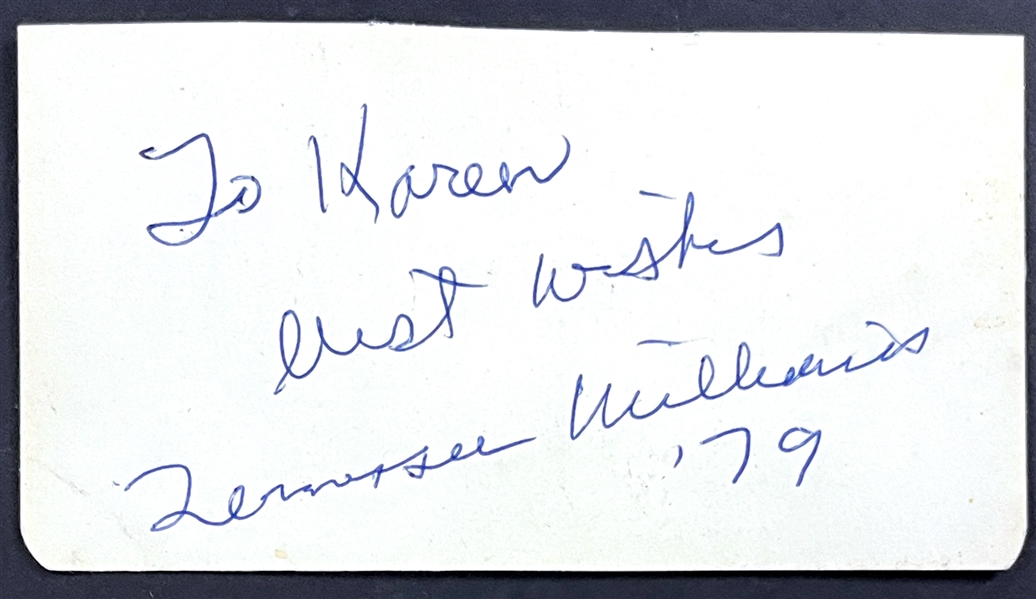 To Karen
best wishes
Tennessee Williams
'79